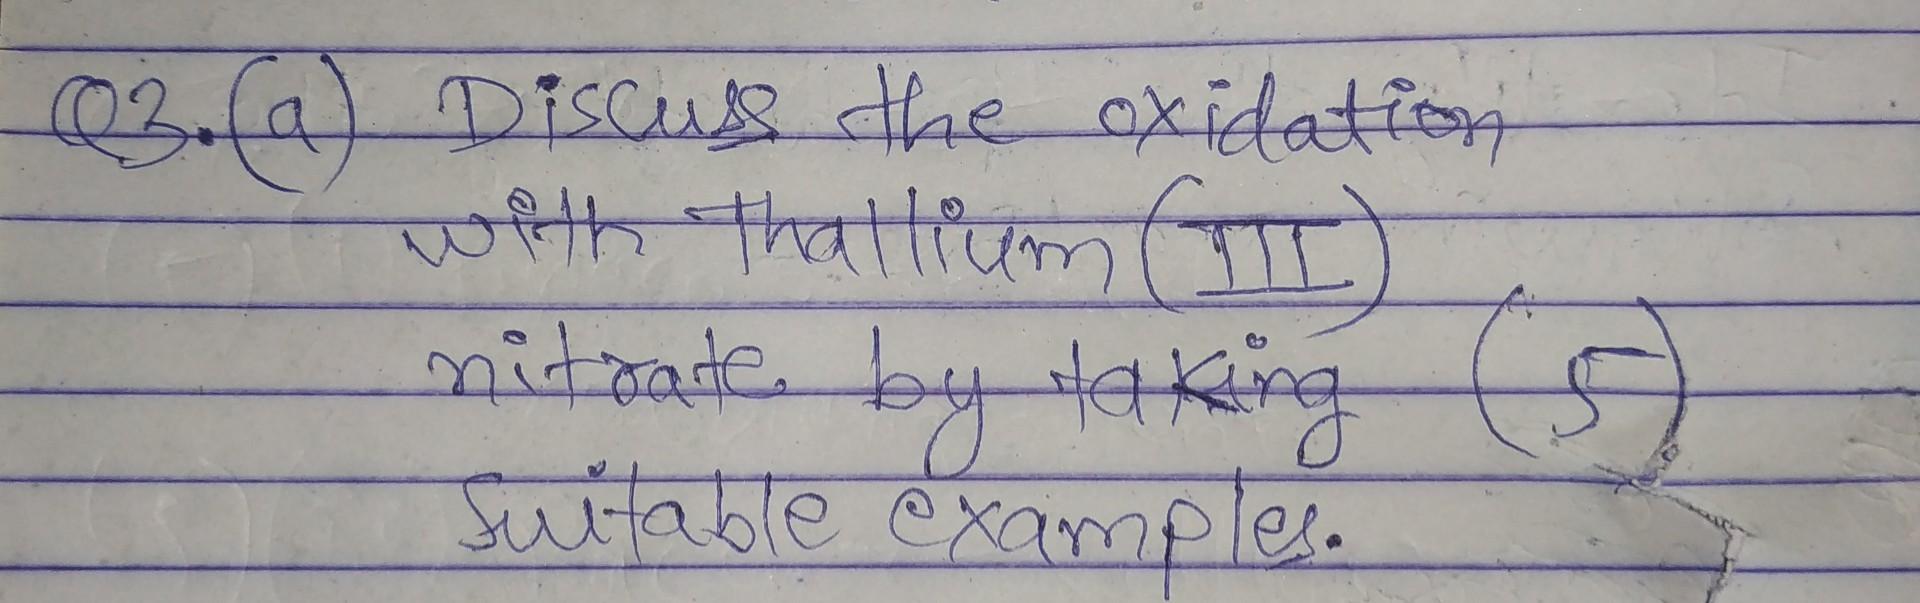 Q3.(a) Discuss the oxidation
with Thallium (III)
nitrate by taking (5)
Suitable examples.